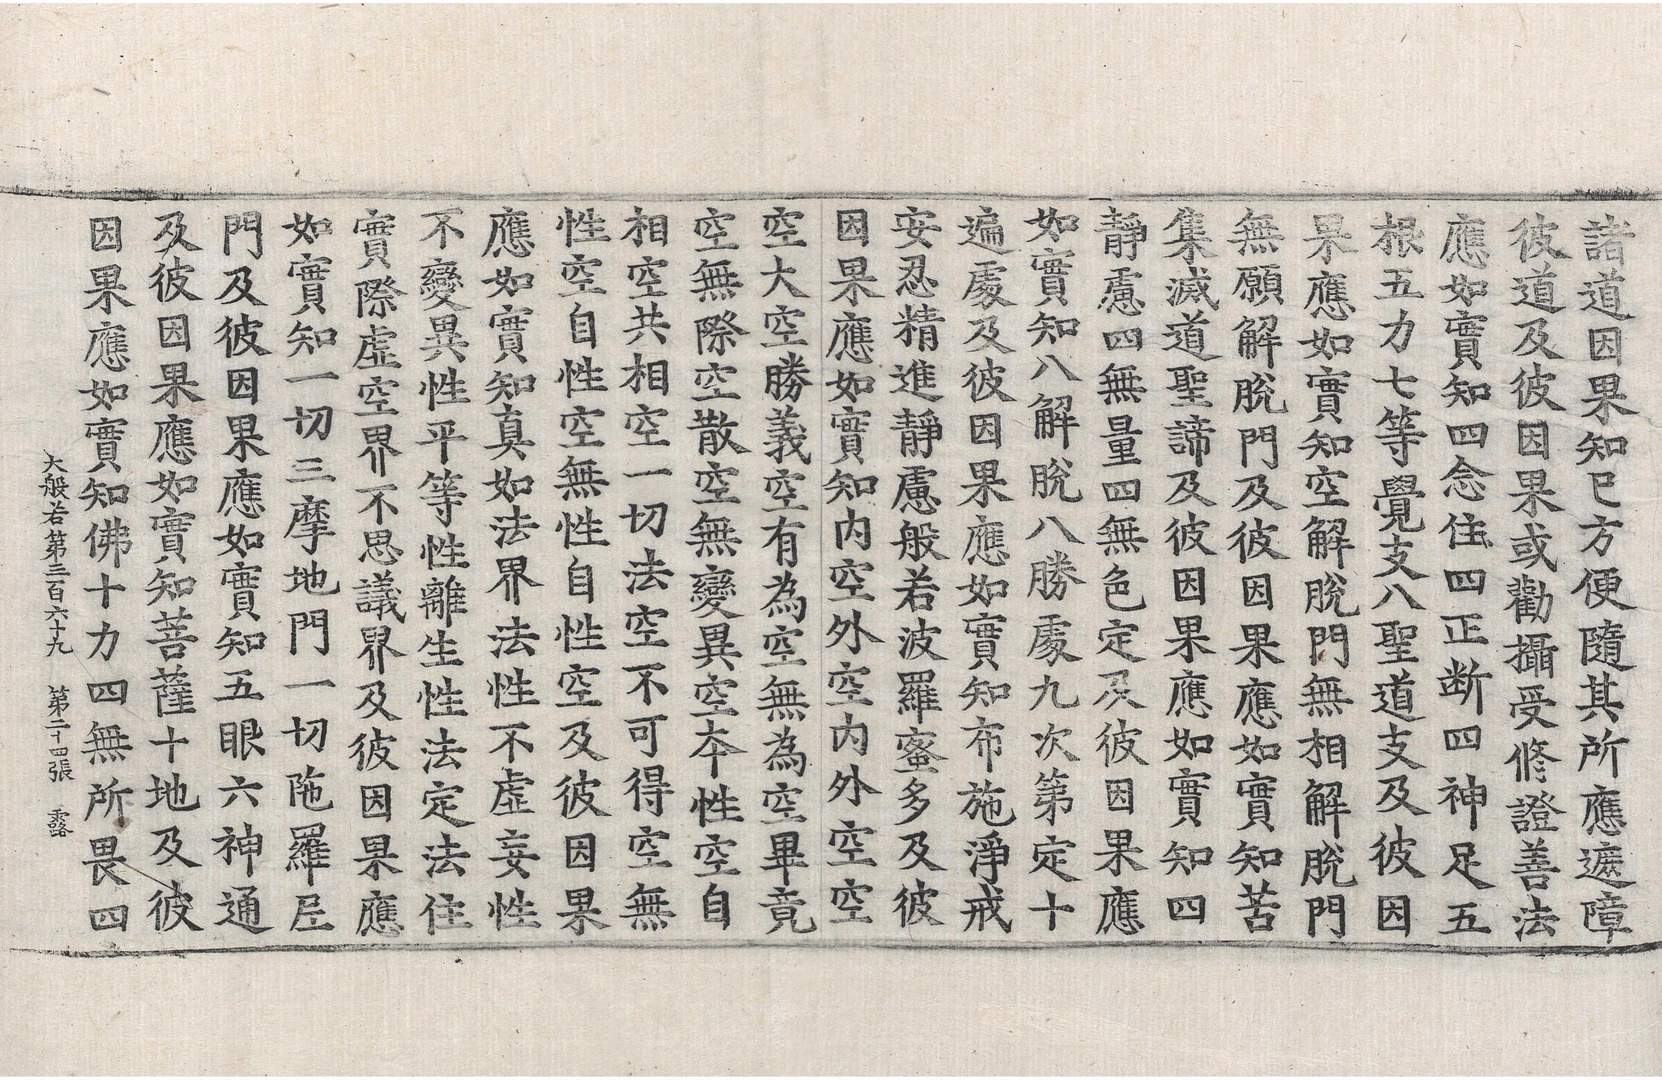 諸道因果知已方便隨其所應遮障
彼道及彼因果或勸攝受修證善法
應如實知四念住四正断四神足五
根五力七等覺支八聖道支及彼因
果應如實知空解脫門無相解脫門
無願解脫門及彼因果應如實知苦
集滅道聖諦及彼因果應如實知四
靜慮四無量四無色定及彼因果應
如實知八解脫八勝處九次第定十
遍處及彼因果應如實知布施淨戒
安忍精進靜慮般若波羅蜜多及彼
因果應如實知內空外空內外空空
空大空勝義空有為空無為空畢竟
空無際空散空無變異空夲性空自
相空共相空一切法空不可得空無
性空自性空無性自性空及彼因果
應如實知真如法界法性不虛妄性
不變異性平等性離生性法定法住
實際虛空界不思議界及彼因果應
如實知一切三摩地門一切陁羅尼
門及彼因果應如實知五眼六神通
及彼因果應如實知菩薩十地及彼
因果應如實知佛十力四無所畏四
大般若第三百六十九 第二十四張 柰